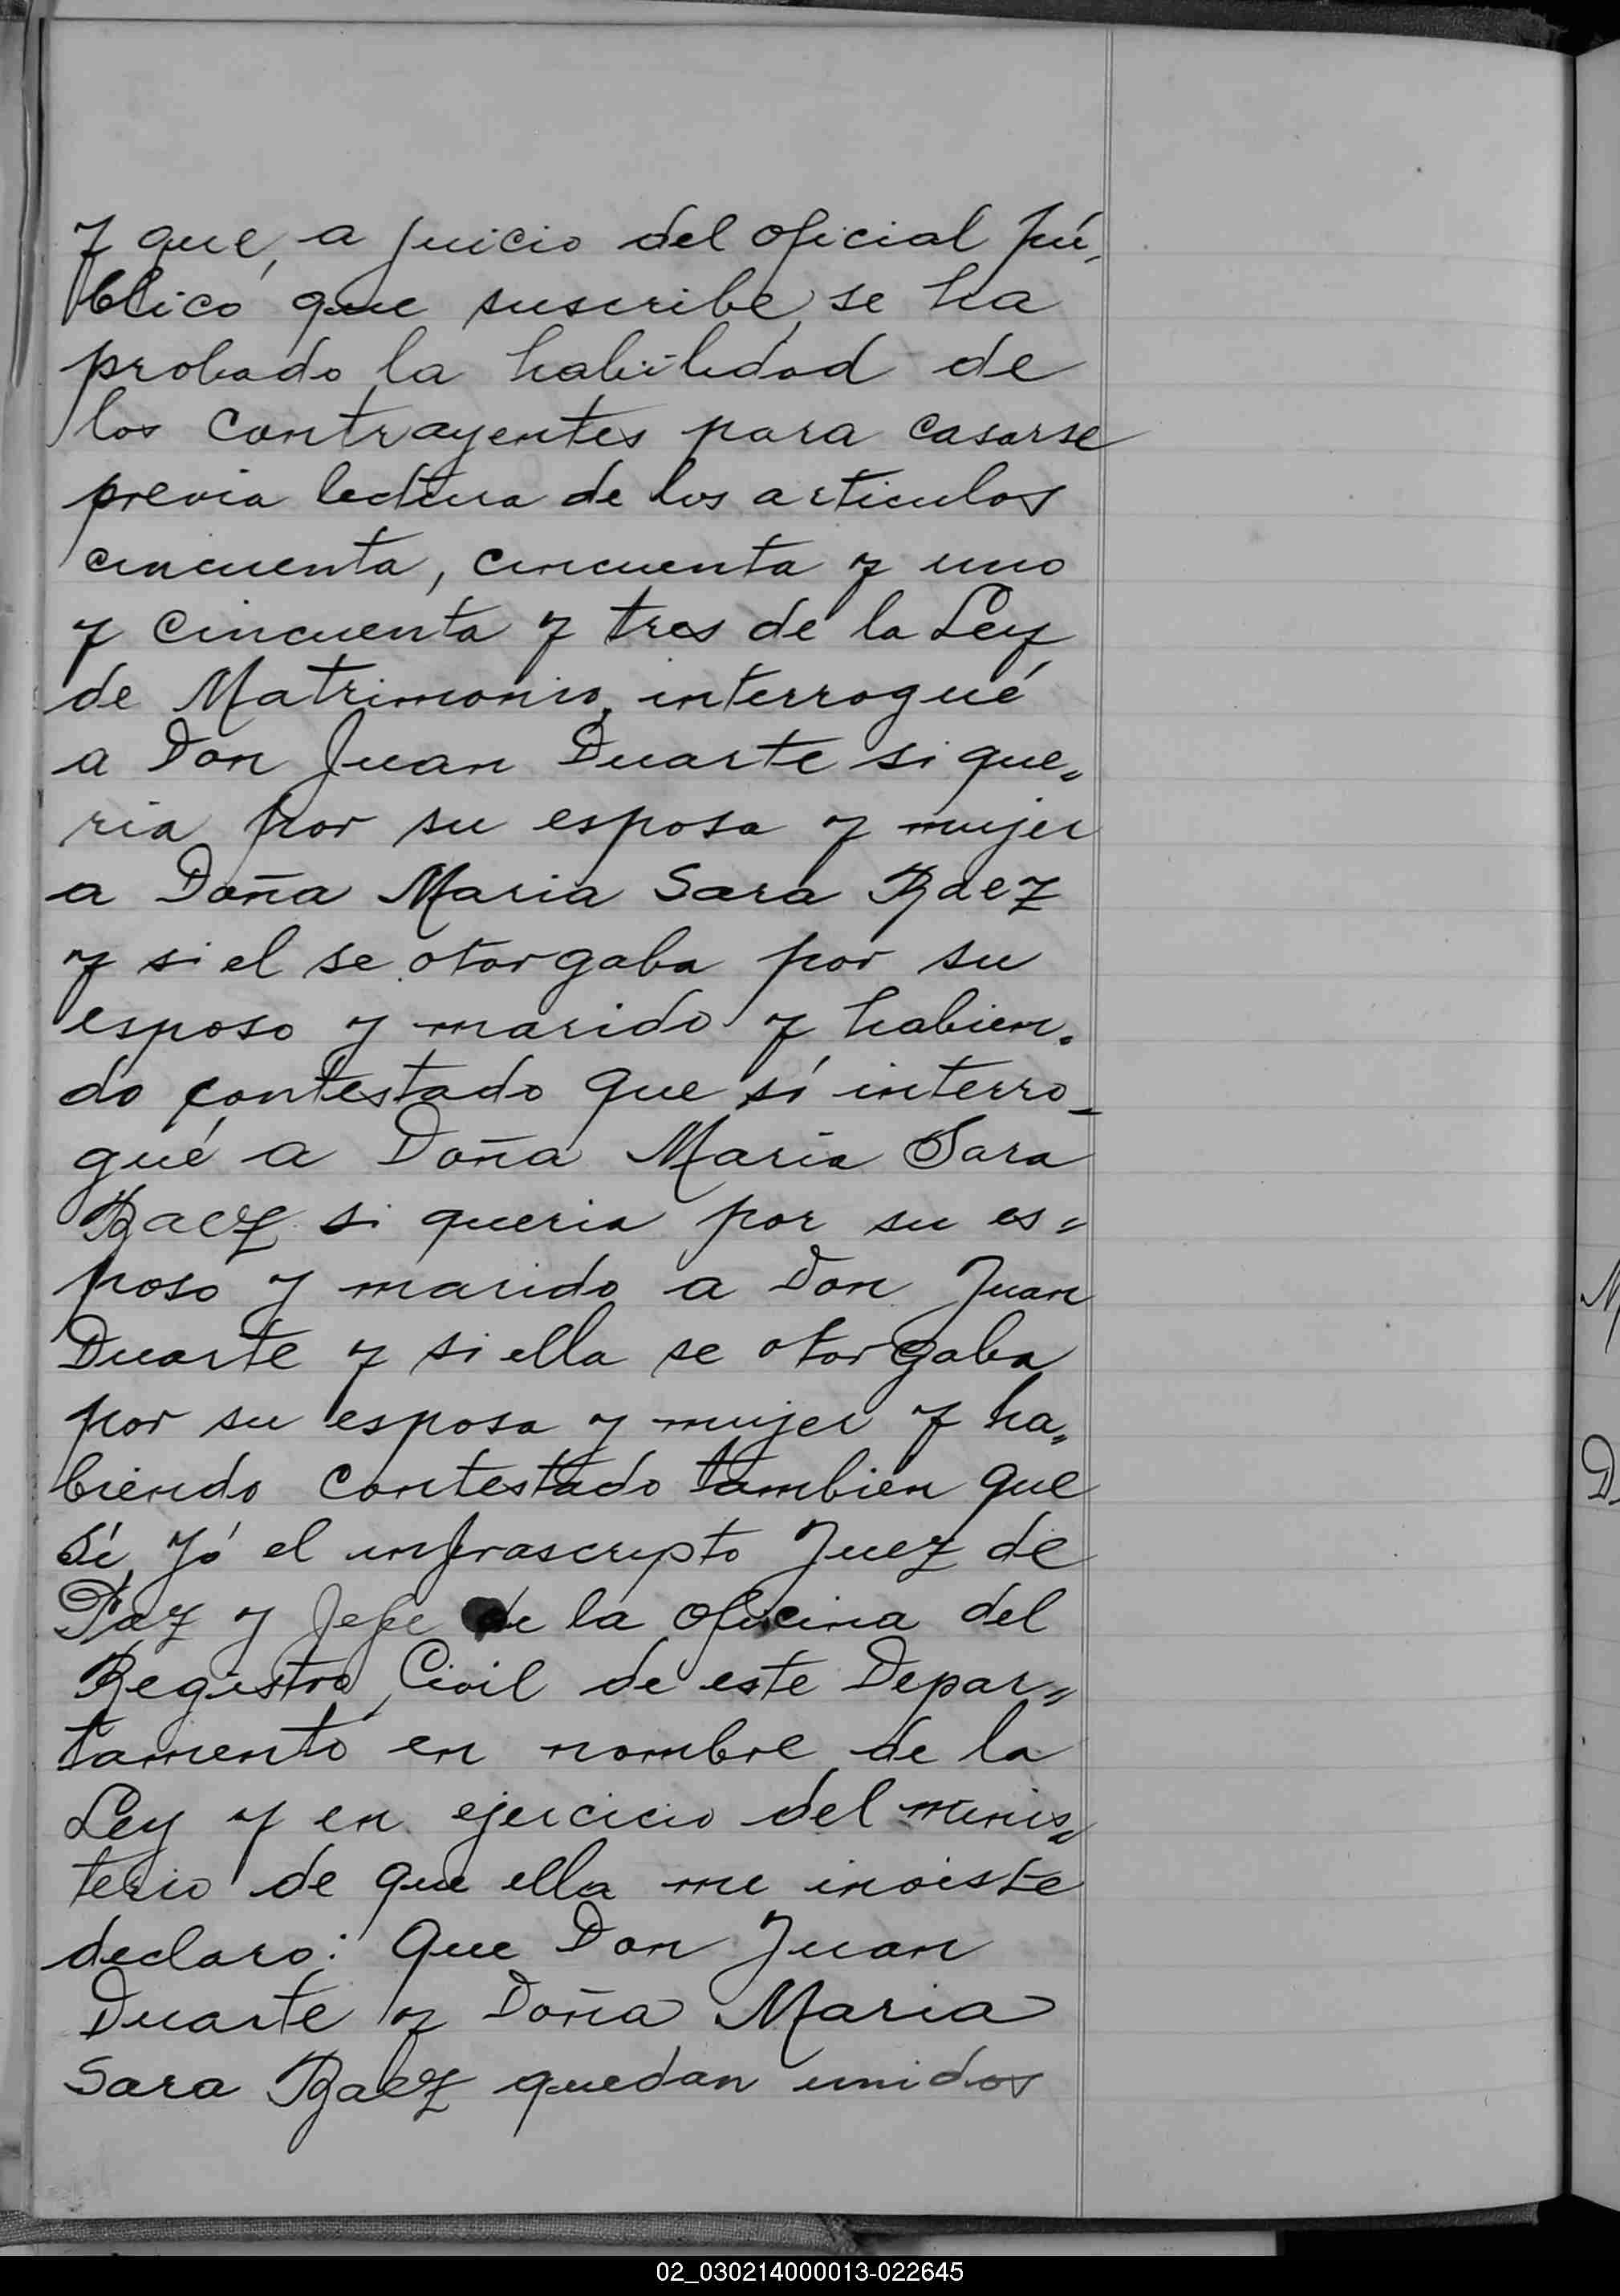 y que, a juicio del oficial pú-
blico que suscribe, se ha
probado la habilidad de
los contrayentes para casarse
previa lectura de los articulos
cincuenta, cincuenta y uno
y cincuenta y tres de la Ley
de Matrimonio, interrogué
a Don Juan Duarte si que=
ria por su esposa y mujer
a Doña Maria Sara Baez
y si el se otorgaba por su
esposo y marido y habien=
do contestado que sí interro-
gué a Doña Maria Sara
Baez si queria por su es=
poso y marido a Don Juan
Duarte y si ella se otorgaba
por su esposa y mujer y ha=
biendo contestado tambien que
sí, yó el infrascripto Juez de
Paz y Jefe de la oficina del
Registro Civil de este Depar=
tamento en nombre de la
Ley y en ejercicio del minis=
terio de que ella me inviste
declaro: Que Don Juan
Duarte y Doña Maria
Sara Baez quedan unidos
M
D
02_030214000013-022645